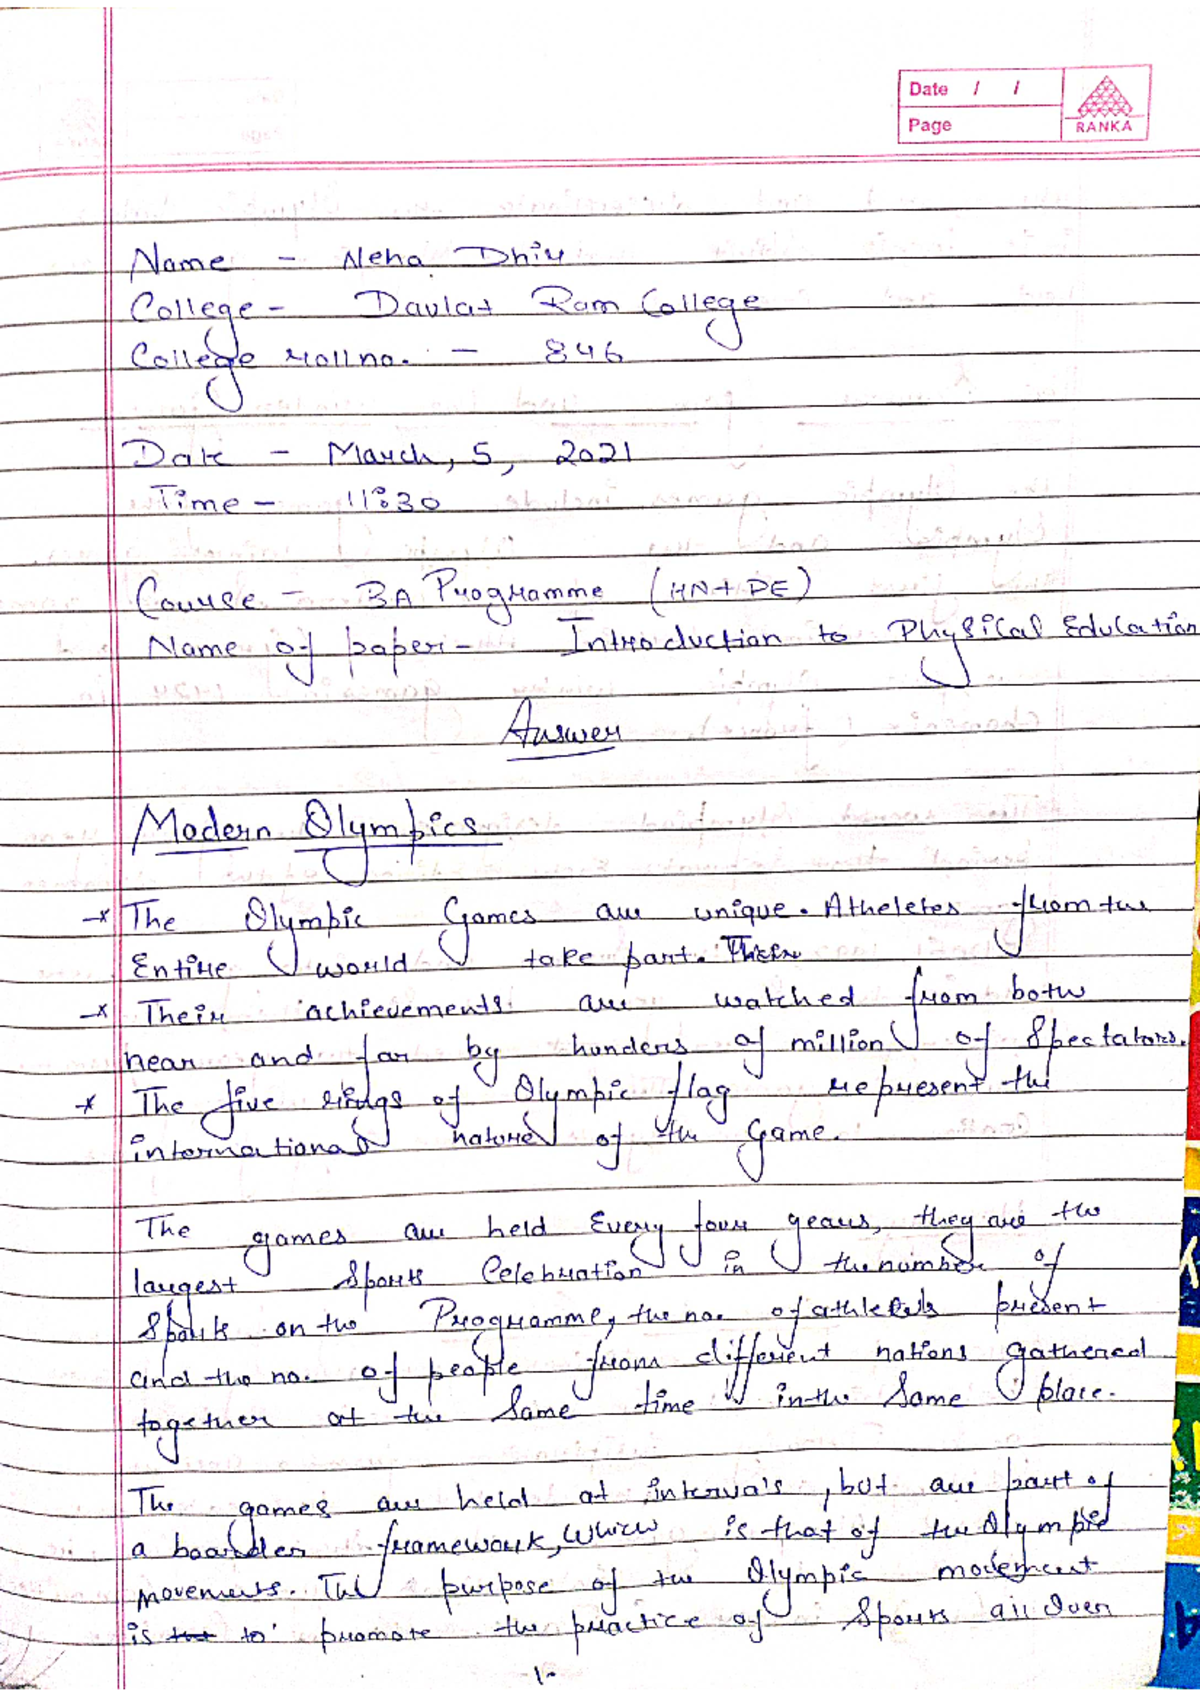 Date / /
Page
RANKA
Name - Neha Dhir
College - Daulat Ram College
College rollno. - 846
Date - March, 5, 2021
Time - 11:30
Course - BA Programme (HN+DE)
Name of paper - Introduction to Physical Education
Answer
Modern Olympics
* The Olympic Games are unique. Atheletes from the
Entire world take part. Their
* Their achievements are watched from both
near and far by hunders of million of Spectators.
* The five rings of Olympic flag represent the
international nature of the Game.
The games are held Every four years, they are the
largest Sports Celebration in the number of
Sports on the Programme, the no. of athletes present
and the no. of people from different nations gathered
together at the Same time in the Same place.
The games are held at interva's, but are part of
a boarder framework, which is that of the Olympic
movements. The purpose of the Olympic
is that to promote the practice of Sports all over
1.